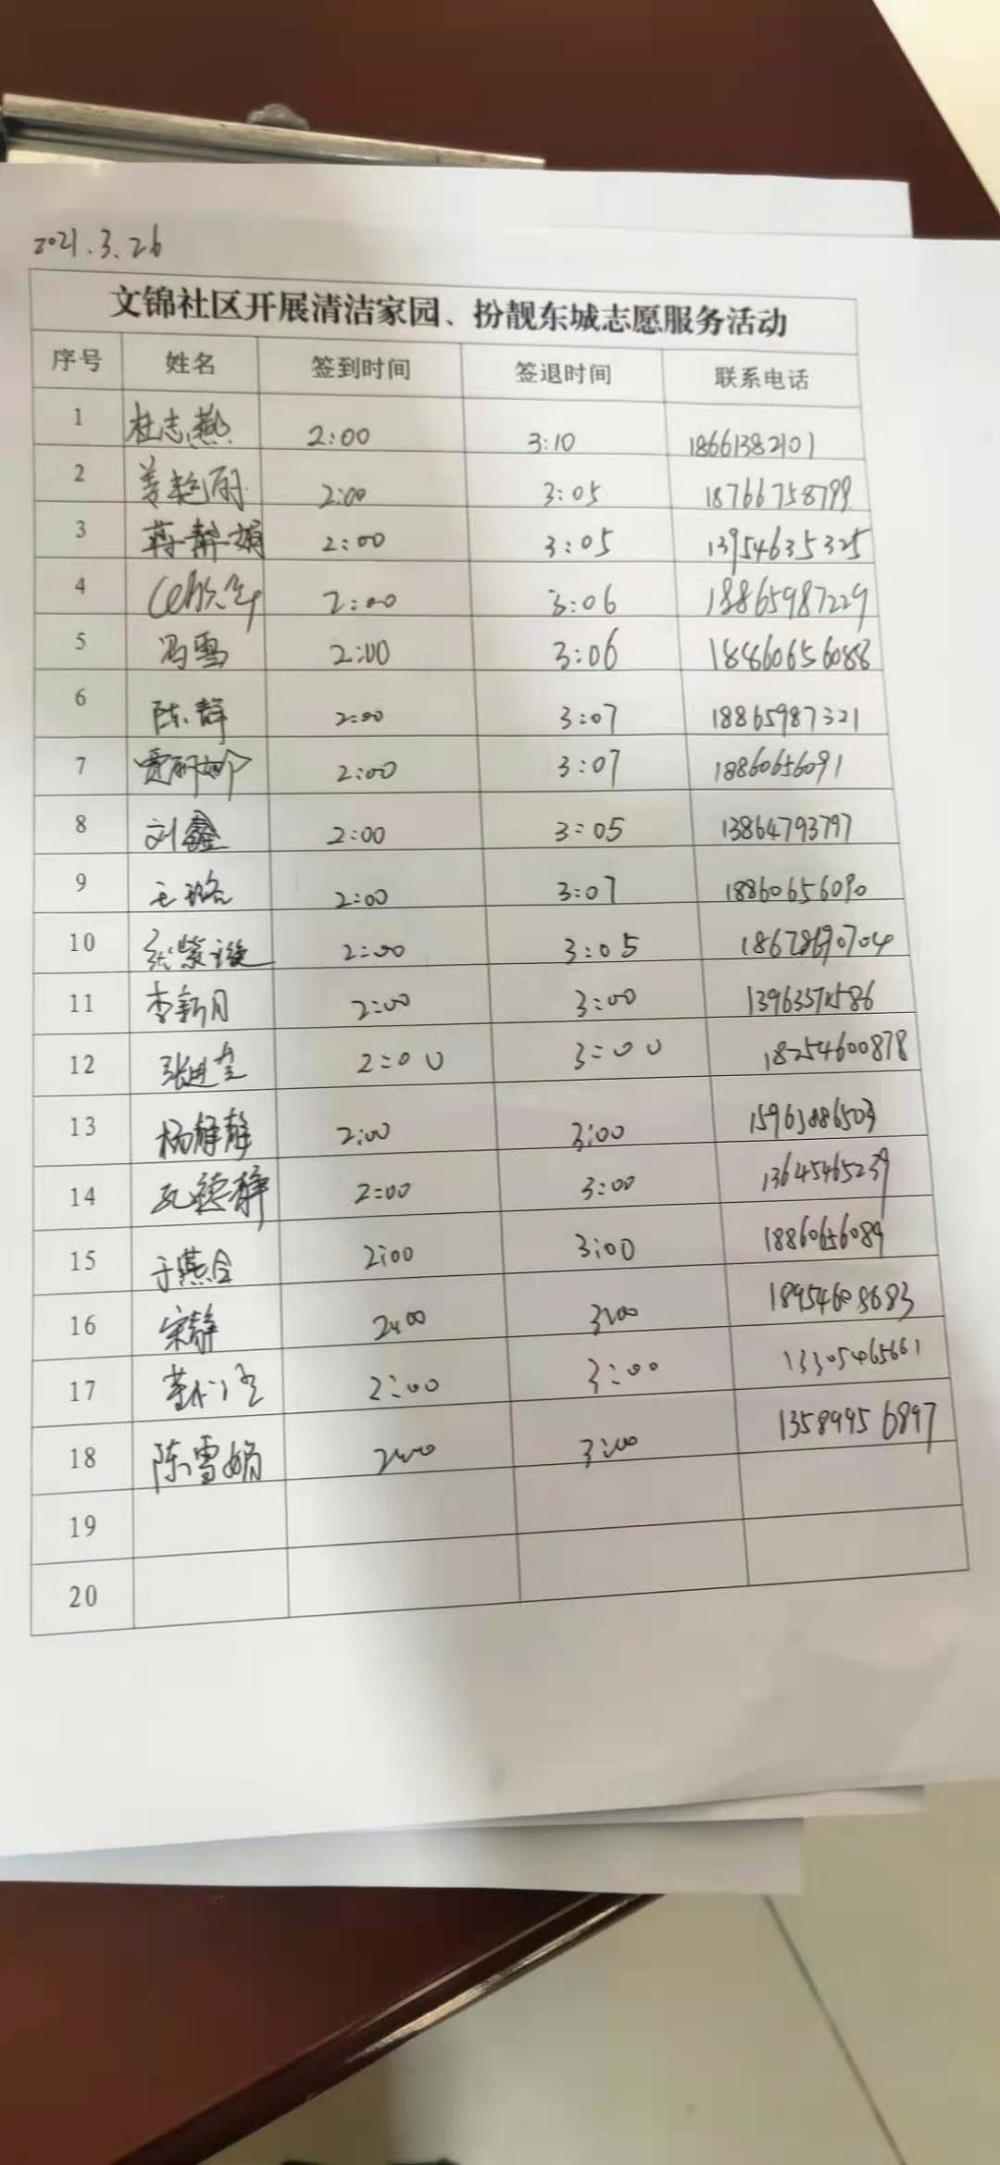 2021.3.26
文锦社区开展清洁家园、扮靓东城志愿服务活动
序号 姓名 签到时间 签退时间 联系电话
1 杜志燕 2:00 3:10 18661382101
2 姜艳丽 2:00 3:05 18766758799
3 蒋静娟 2:00 3:05 13954635325
4 2:00 3:06 18865987229
5 冯雪 2:00 3:06 18860656088
6 陈静 2:00 3:07 18865987321
7 2:00 3:07 18860656091
8 刘鑫 2:00 3:05 13864793797
9 王璐 2:00 3:07 18860656090
10 张紫璇 2:00 3:05 18678690704
11 李新月 2:00 3:00
12 2:00 3:00 18254600878
13 杨静静 2:00 3:00 15963886503
14 德静 2:00 3:00 13645465239
15 于燕合 2:00 3:00 18860656089
16 宋静 2:00 3:00 18954608683
17 2:00 3:00 13305465661
18 陈雪娟 2:00 3:00 13589956897
19
20